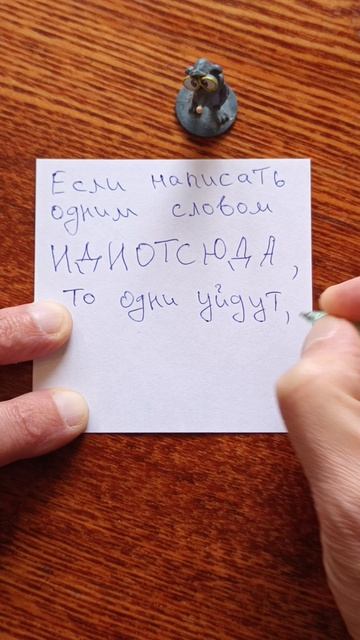 Если написать
одним словом
ИДИОТСЮДА,
то одни уйдут,